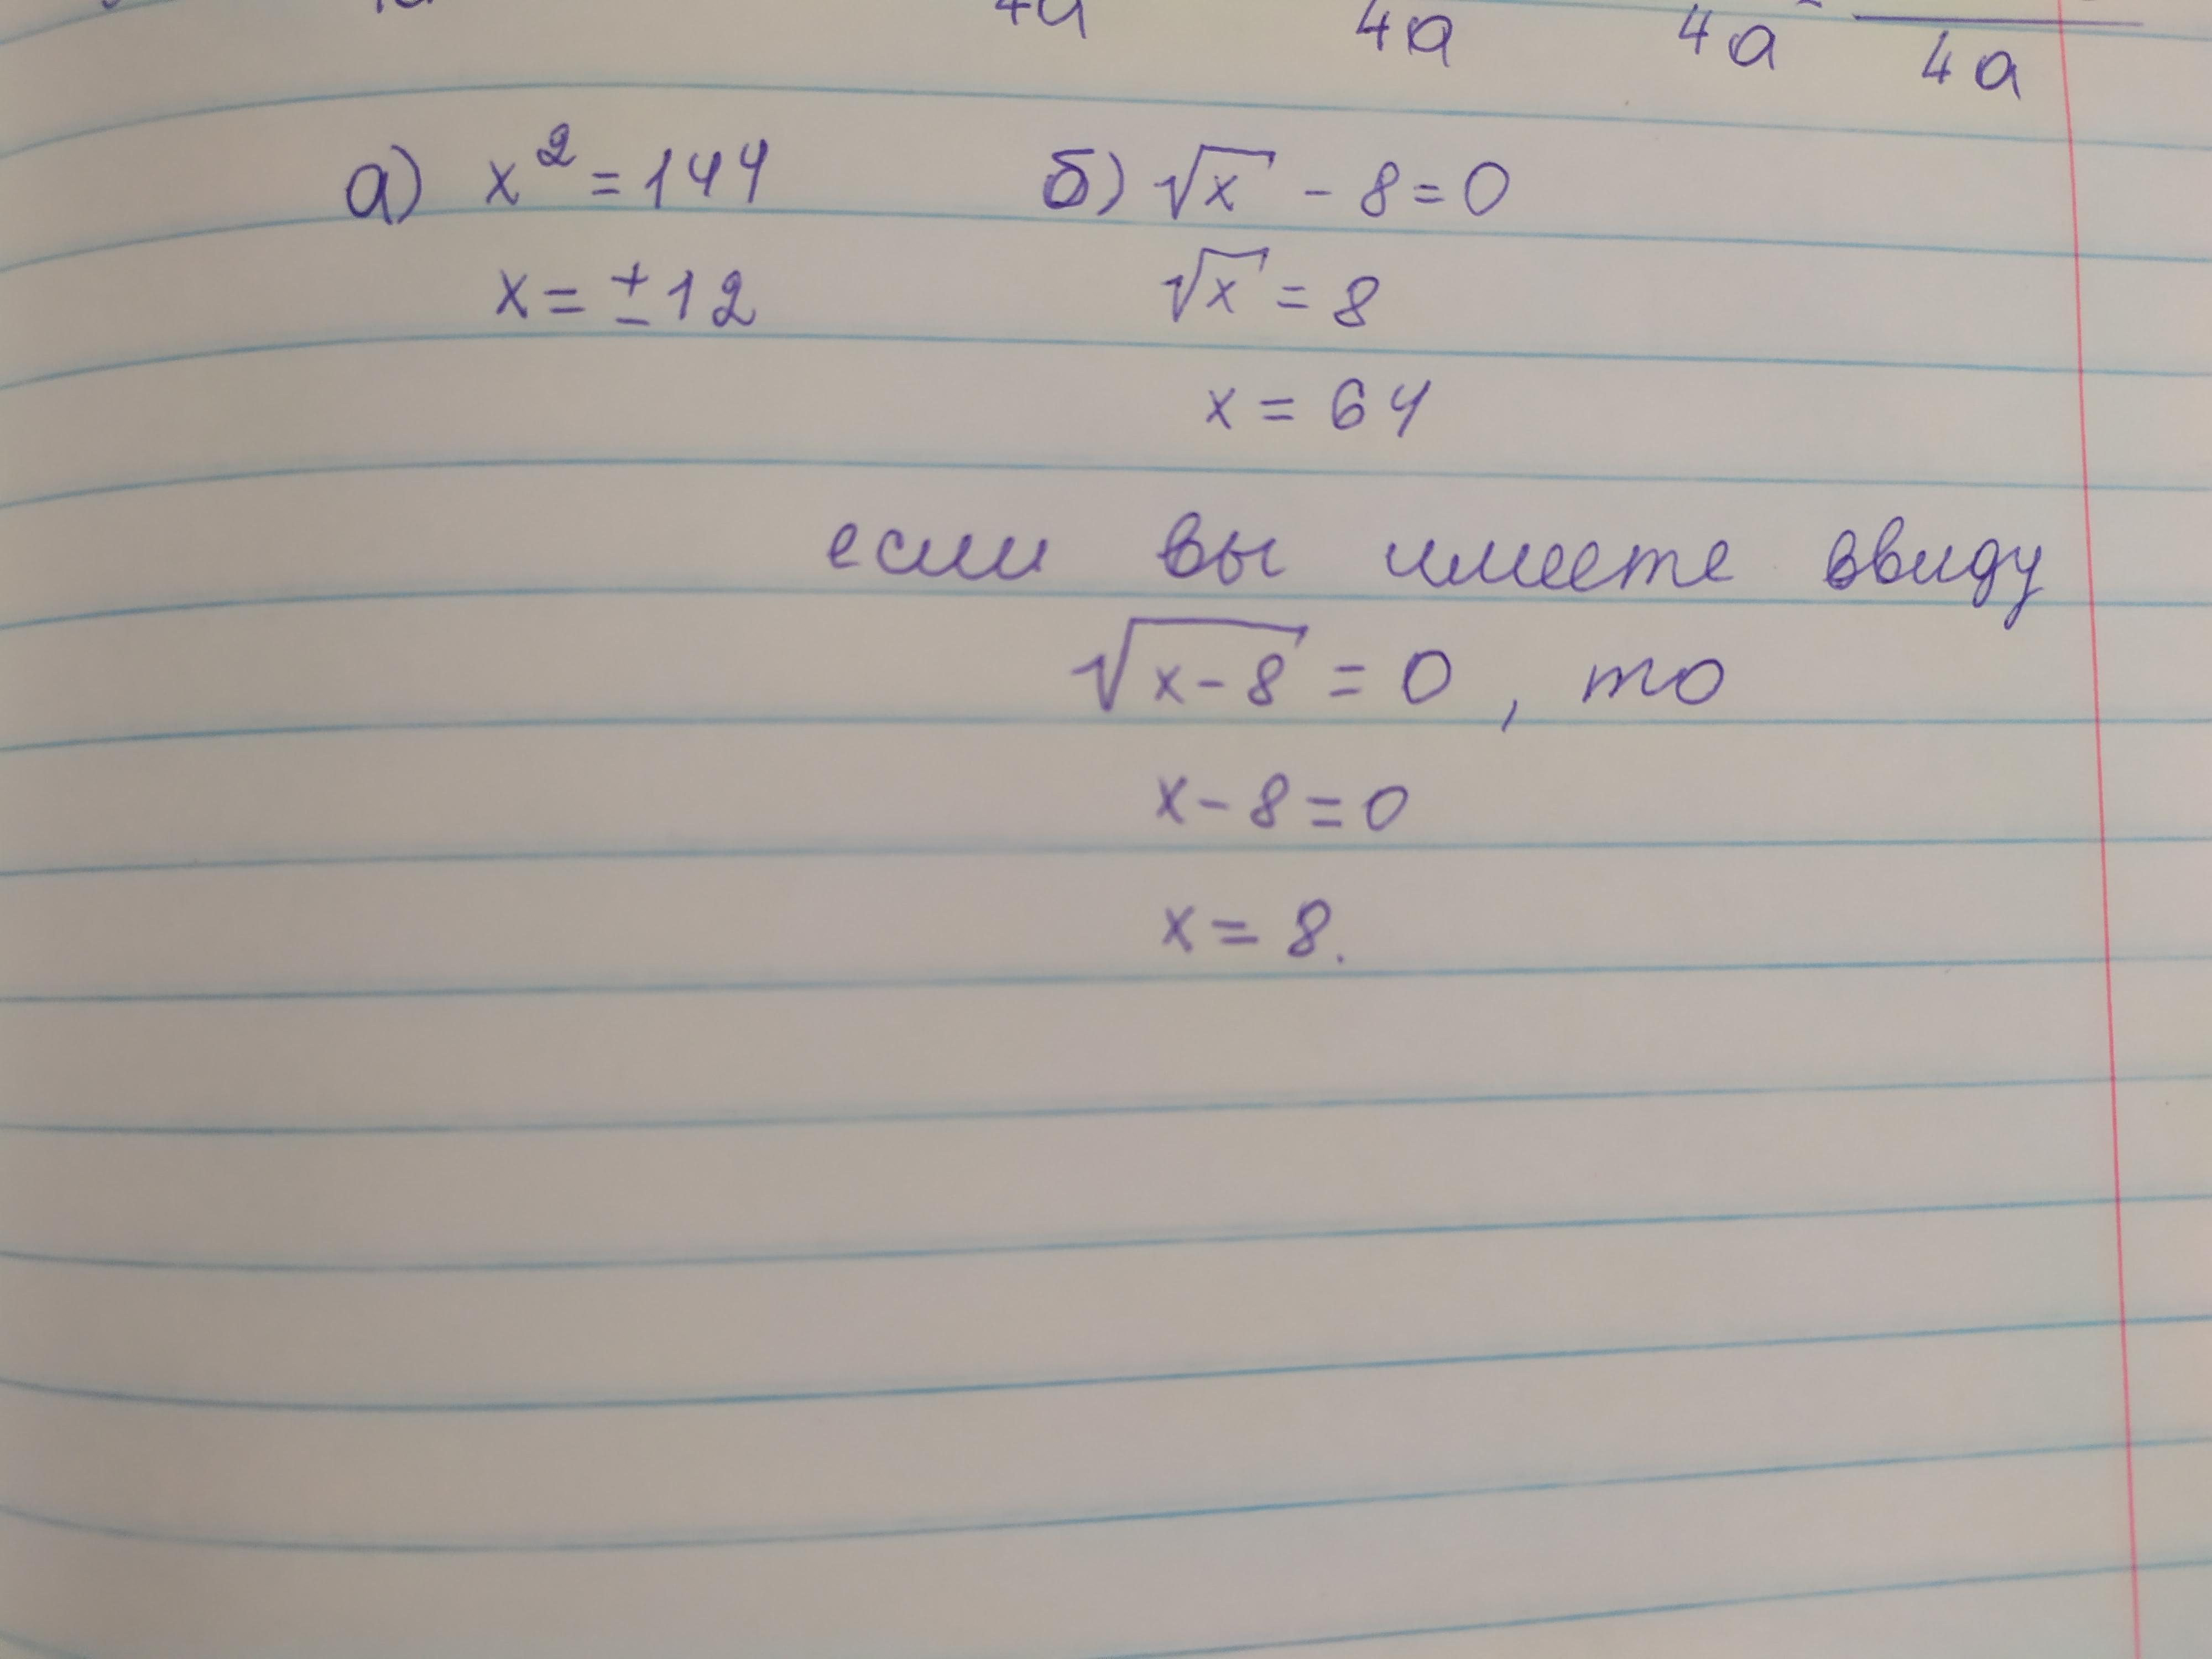 4a 4a 4a 4a
а) x² = 144 б) √x - 8 = 0
x = ±12 √x = 8
x = 64
если вы имеете ввиду
√(x-8) = 0, то
x - 8 = 0
x = 8.